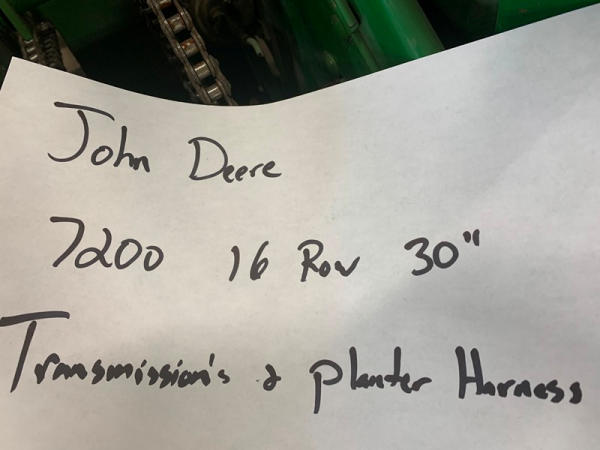 John Deere
7200 16 Row 30"
Transmission's & planter Harness